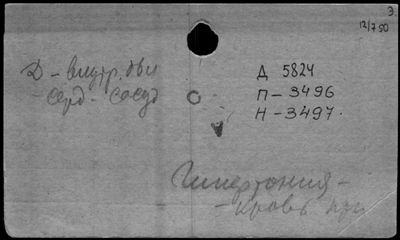 3.
12/7 50
Д - внутр. бол
серд - сосуд
Д 5824
П - 3496
Н - 3497.
Гипертония -
- кровь при